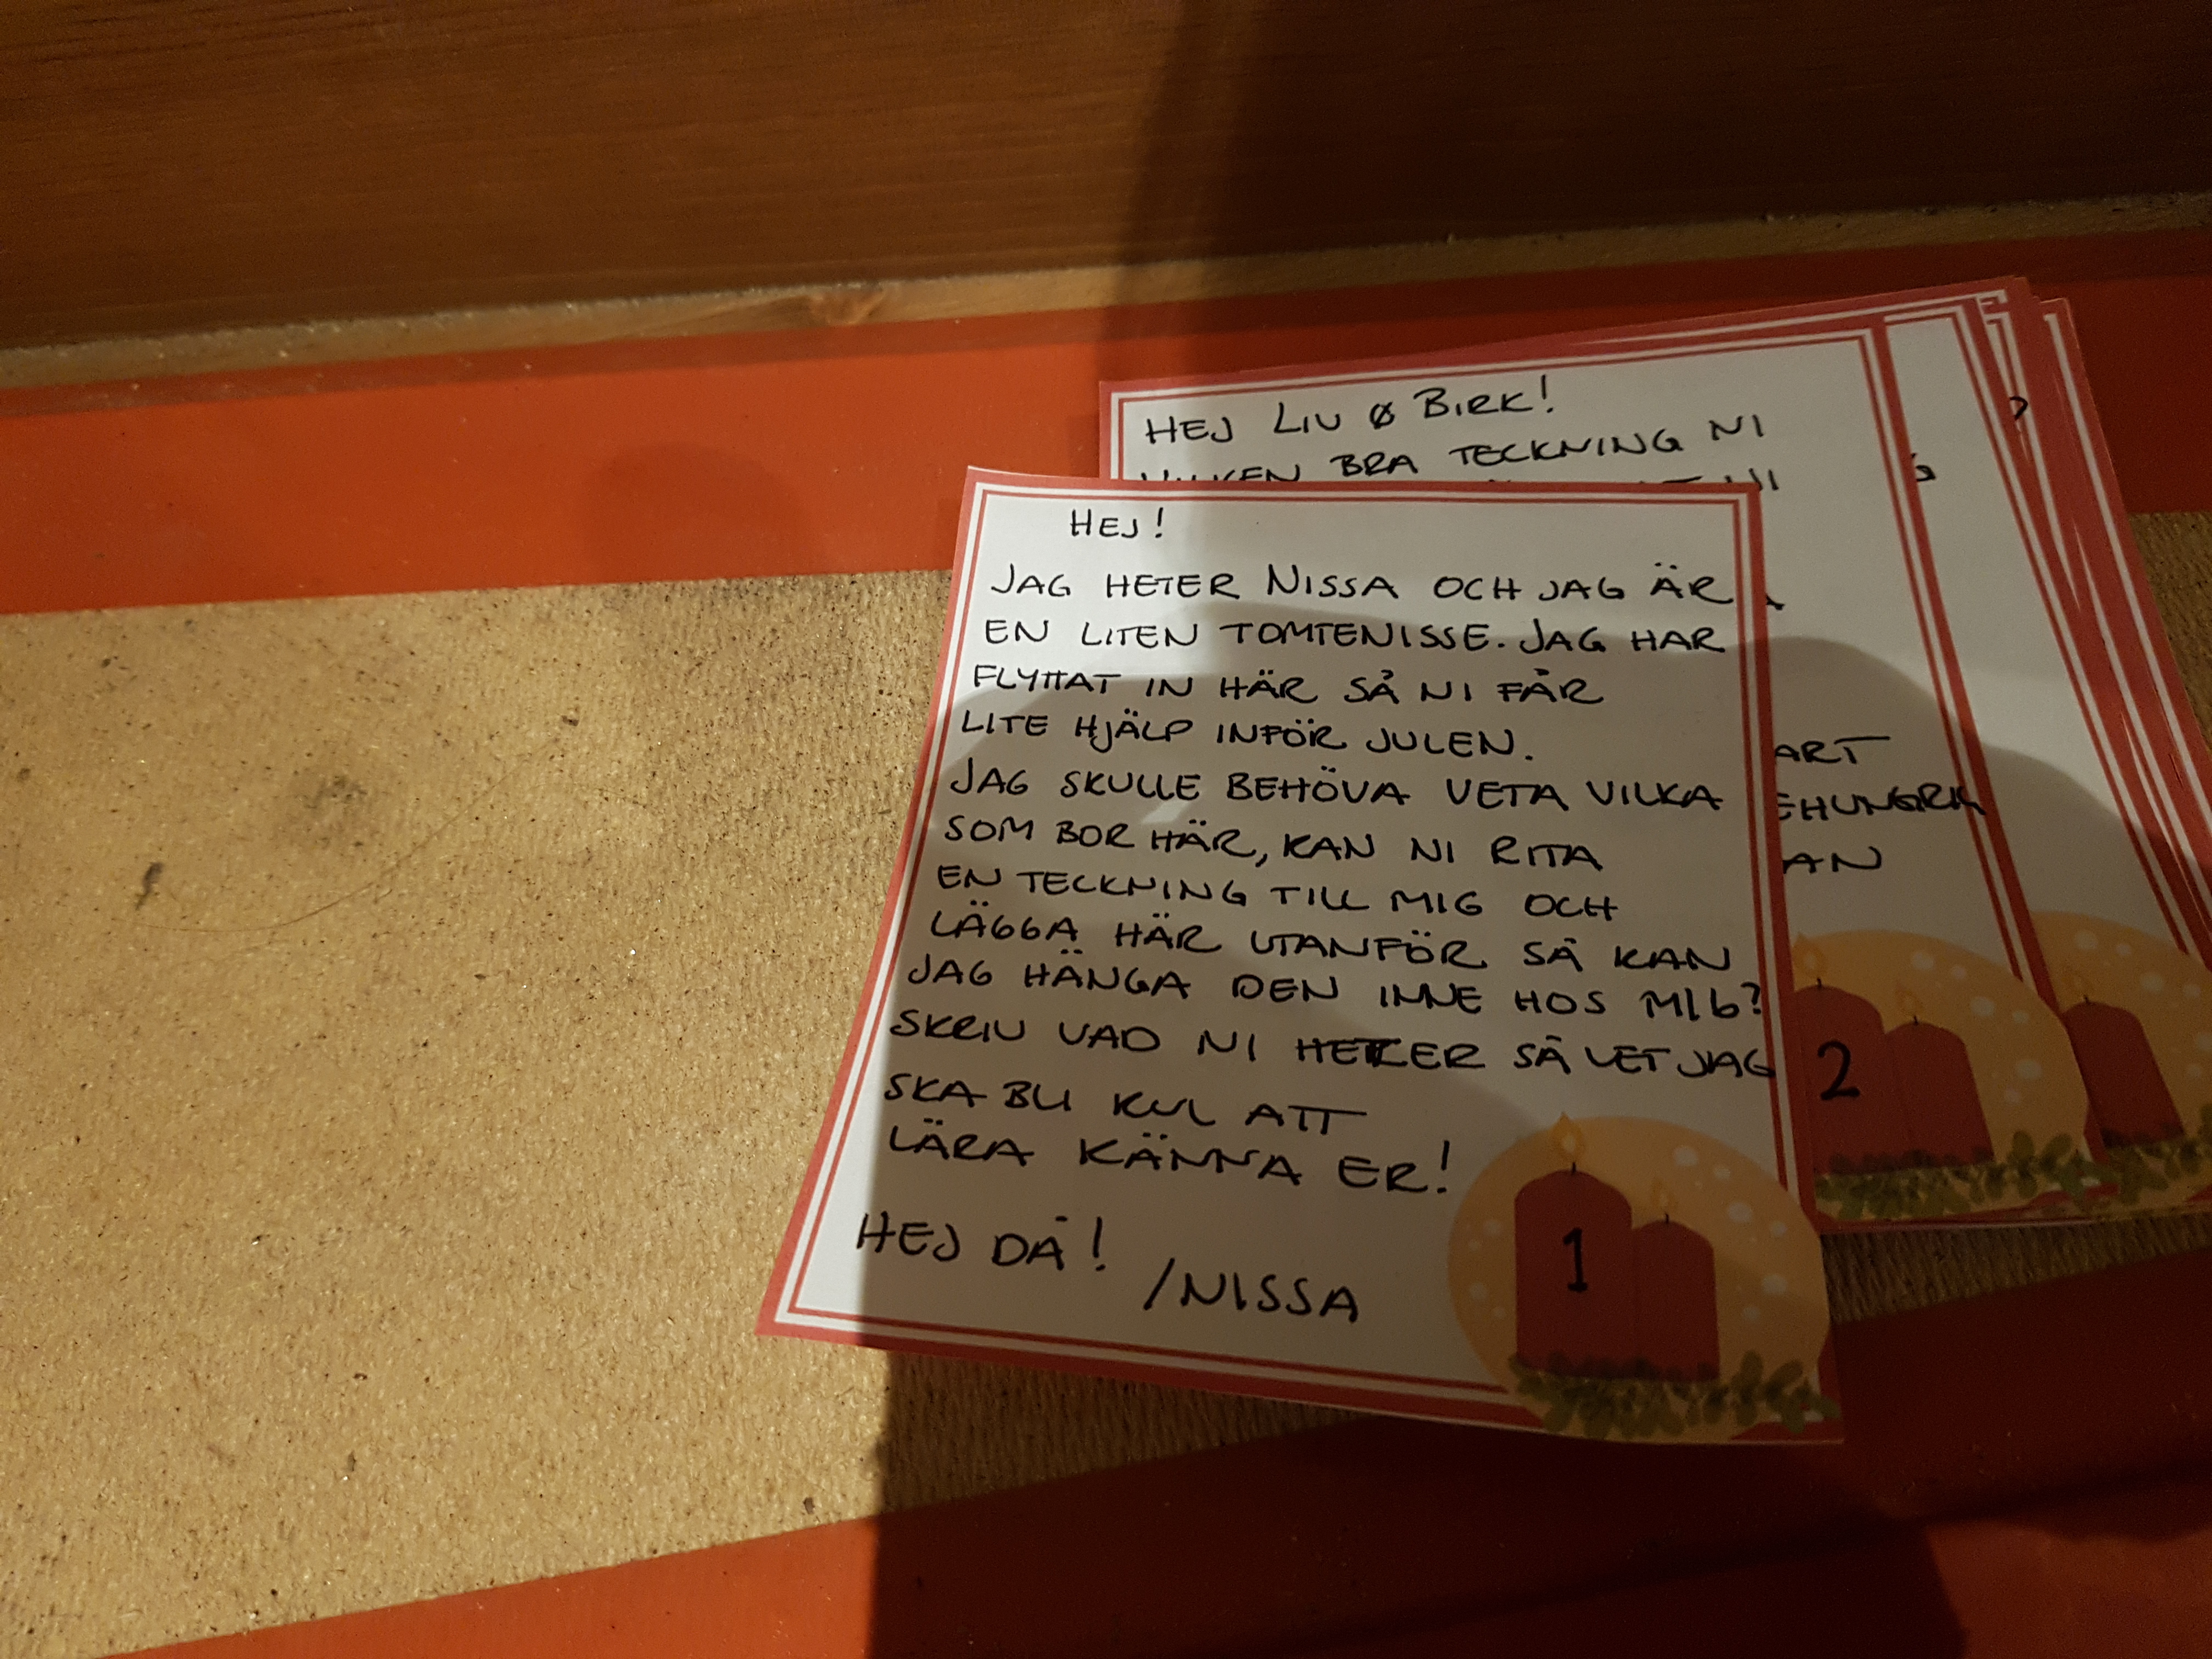 HEJ LIV & BIRK!
VILKEN BRA TECKNING NI
HEJ!
JAG HETER NISSA OCH JAG ÄR
EN LITEN TOMTENISSE. JAG HAR
FLYTTAT IN HÄR SÅ NI FÅR
LITE HJÄLP INFÖR JULEN.
JAG SKULLE BEHÖVA VETA VILKA
SOM BOR HÄR, KAN NI RITA
EN TECKNING TILL MIG OCH
LÄGGA HÄR UTANFÖR SÅ KAN
JAG HÄNGA DEN INNE HOS MIG?
SKRIV VAD NI HETER SÅ VET JAG
SKA BLI KUL ATT
LÄRA KÄNNA ER!
HEJ DÅ!
/NISSA
1
ART
EHUNGRIG
AN
2